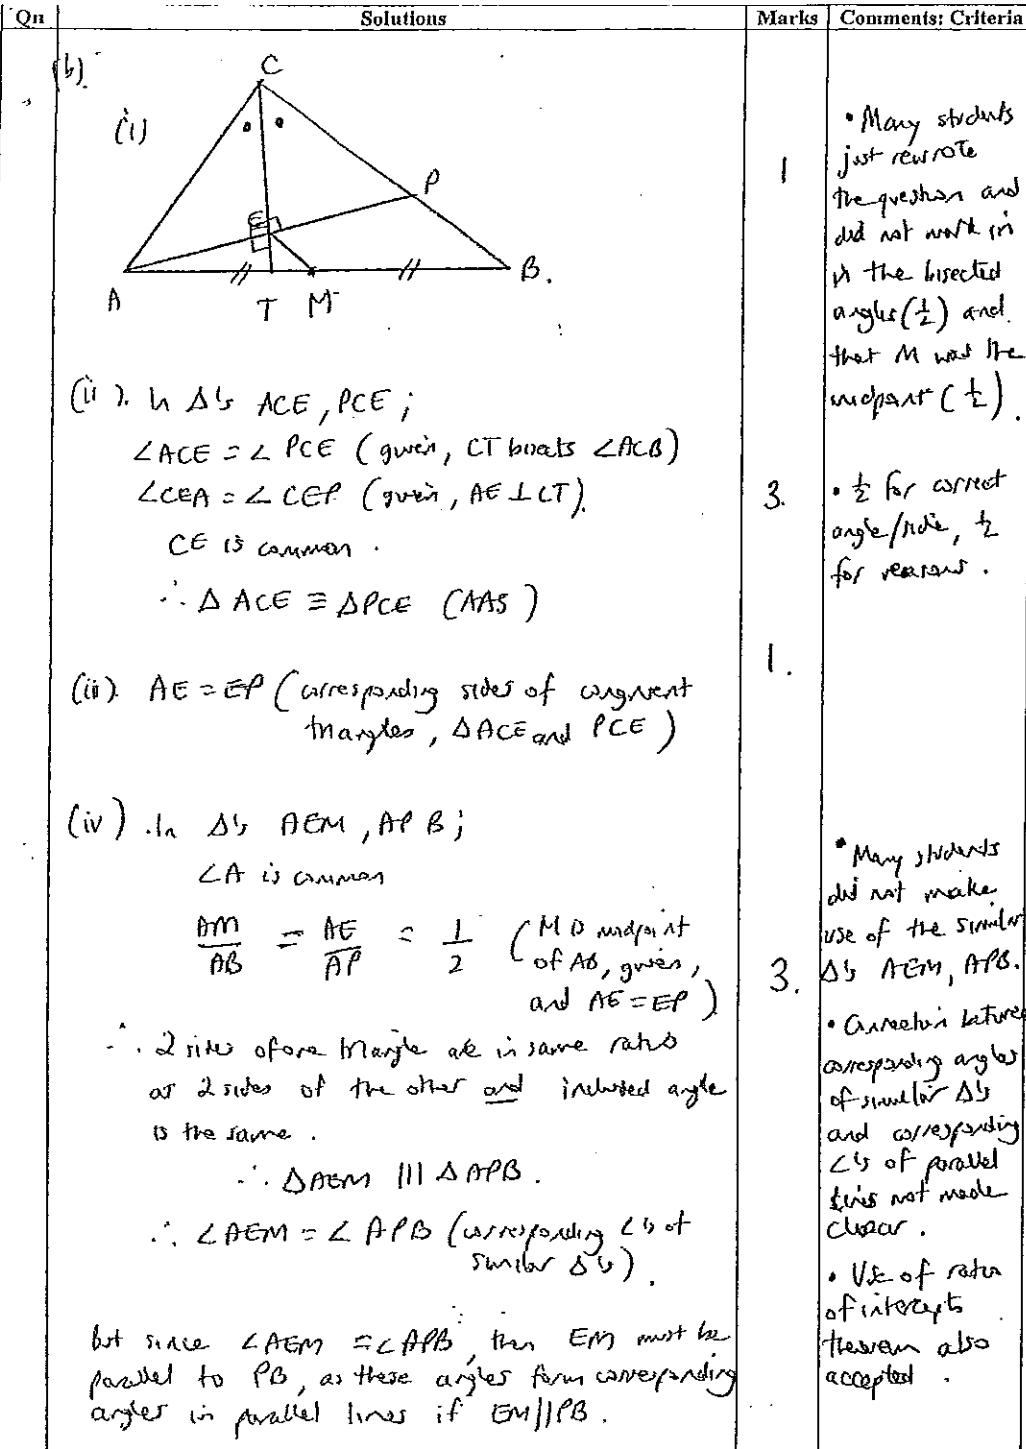 Qn Solutions Marks Comments: Criteria
(b)
(i)
C
P
E
A
T
M
B.
1
• Many students
just rewrote
the question and
did not work in
the bisected
angles (½) and
that M was the
midpoint (½).
(ii). In Δ's ACE, PCE;
∠ACE = ∠PCE (given, CT bisects ∠ACB)
∠CEA = ∠CEP (given, AE ⊥ CT).
CE is common.
∴ Δ ACE ≡ ΔPCE (AAS)
3.
• ½ for correct
angle/side, ½
for reasons.
(iii). AE = EP (corresponding sides of congruent
triangles, ΔACE and PCE)
1.
(iv). In Δ's AEM, APB;
∠A is common
AM/AB = AE/AP = 1/2 (M is midpoint
of AB, given,
and AE = EP)
∴ 2 sides of one triangle are in same ratio
as 2 sides of the other and included angle
is the same.
∴ ΔAEM ||| ΔAPB.
∴ ∠AEM = ∠APB (corresponding ∠'s of
similar Δ's).
but since ∠AEM = ∠APB, then EM must be
parallel to PB, as these angles form corresponding
angles in parallel lines if EM||PB.
3.
• Many students
did not make
use of the similar
Δ's AEM, APB.
• Connection between
corresponding angles
of similar Δ's
and corresponding
∠'s of parallel
lines not made
clear.
• Use of ratio
of intercepts
theorem also
accepted.